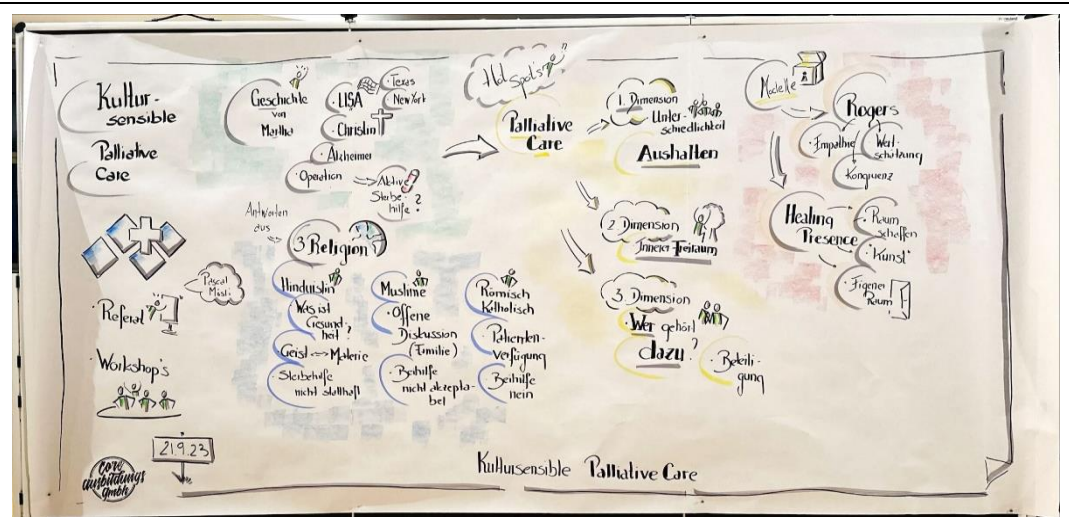 Kultur-
sensible
Palliative
Care
Referat
Pascal
Mösli
Workshop's
21.9.23
core
ausbildungs
gmbh
Geschichte
von
Martha
· USA
· Texas
· New York
· Christin
· Alzheimer
· Operation
Aktive
Sterbe-
hilfe?
Antworten
aus
3 Religion
Hinduistin
Was ist
Gesund-
heit?
Geist <-> Materie
· Sterbehilfe
nicht statthaft
Muslime
· Offene
Diskussion
(Familie)
· Beihilfe
nicht akzepta-
bel
Römisch
Katholisch
· Patienten-
verfügung
· Beihilfe
nein
Hot
spot's
Palliative
Care
1. Dimension
· Unter-
schiedlichkeit
Aushalten
2. Dimension
Innerer Freiraum
3. Dimension
· Wer gehört
dazu?
· Beteili-
gung
Modelle
Rogers
· Empathie
Wert-
schätzung
Kongruenz
Healing
Presence
· Raum
schaffen
· Kunst
· Eigener
Raum
Kultursensible Palliative Care